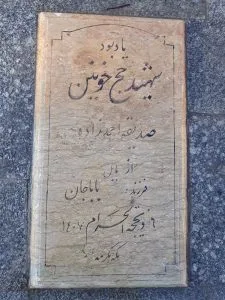 یادبود
شهید حج خونین
صدیقه احمدزاده
از بابل
فرزند: باباجان
۶ ذیحجه الحرام ۱۴۰۷